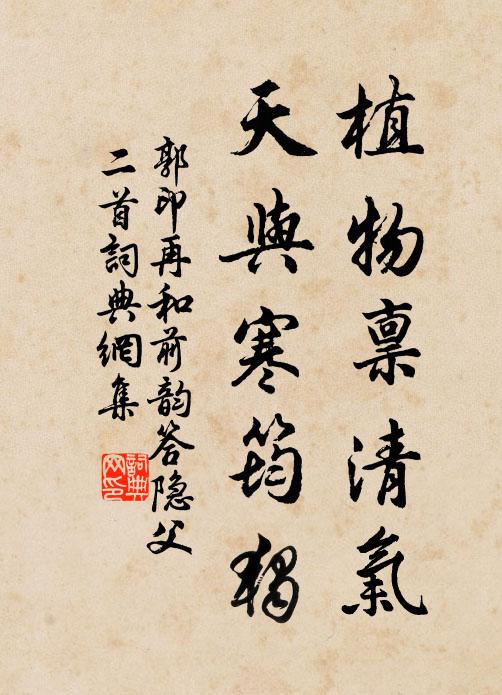 植物禀清氣
天與寒筠獨
郭印再和前韵答隐父
二首詞典網集
詞典網印